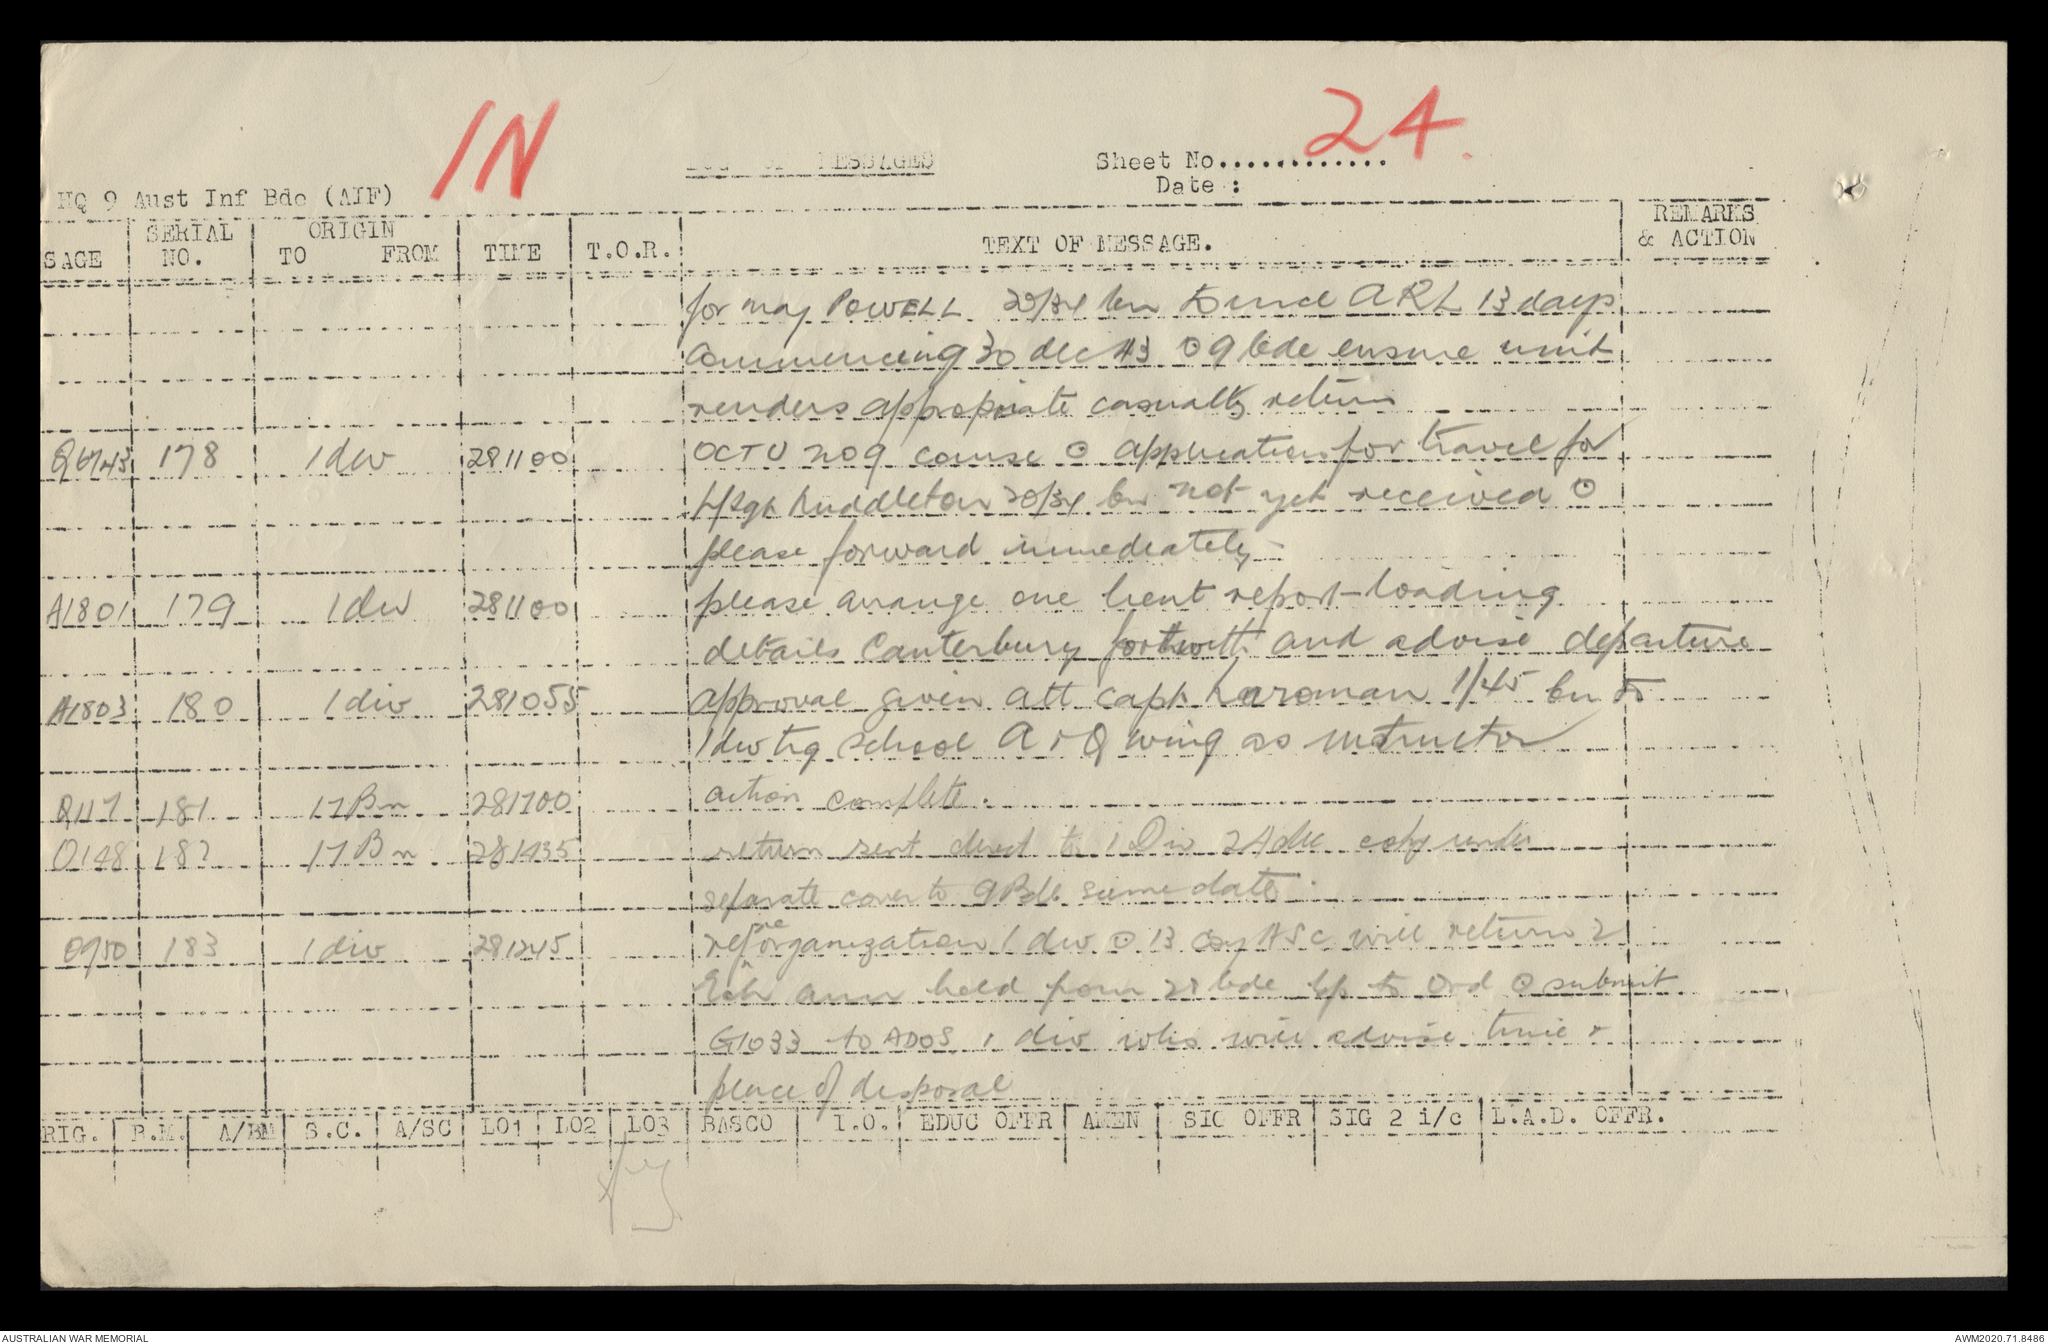 IN
24.
LOG OF MESSAGES
Sheet No.............
Date :
HQ 9 Aust Inf Bde (AIF)
SAGE SERIAL NO. ORIGIN TO FROM TIME T.O.R. TEXT OF MESSAGE. REMARKS & ACTION
for maj POWELL 20/34 bn ARL 13 days
commencing 30 dec 43 ⊙ 9 bde ensure unit
renders appropriate casualty return
Q6743 178 1 div 281100 OCTU 209 course ⊙ application for travel for
L/Sgt Muddleton 20/34 bn not yet received ⊙
please forward immediately
A1801 179 1 div 281100 please arrange one lieut report loading
details Canterbury forthwith and advise departure
A1803 180 1 div 281055 approval given att capt 1/45 bn to
1 div trg school A & Q wing as instructor
Q117 181 17 Bn 281700 action complete.
O148 182 17 Bn 281435 return sent direct to 1 Div 24 dec copy under
separate cover to 9 Bde same date.
O950 183 1 div 281245 re organization 1 div ⊙ 13 coy ASC will return 2
amn held from bde to Ord ⊙ submit
G1033 to ADOS 1 div who will advise time &
place of disposal
RIG. B.M. A/BM S.C. A/SC LO1 LO2 LO3 BASCO I.O. EDUC OFFR AMEN SIG OFFR SIG 2 i/c L.A.D. OFFR.
AUSTRALIAN WAR MEMORIAL
AWM2020.71.8486